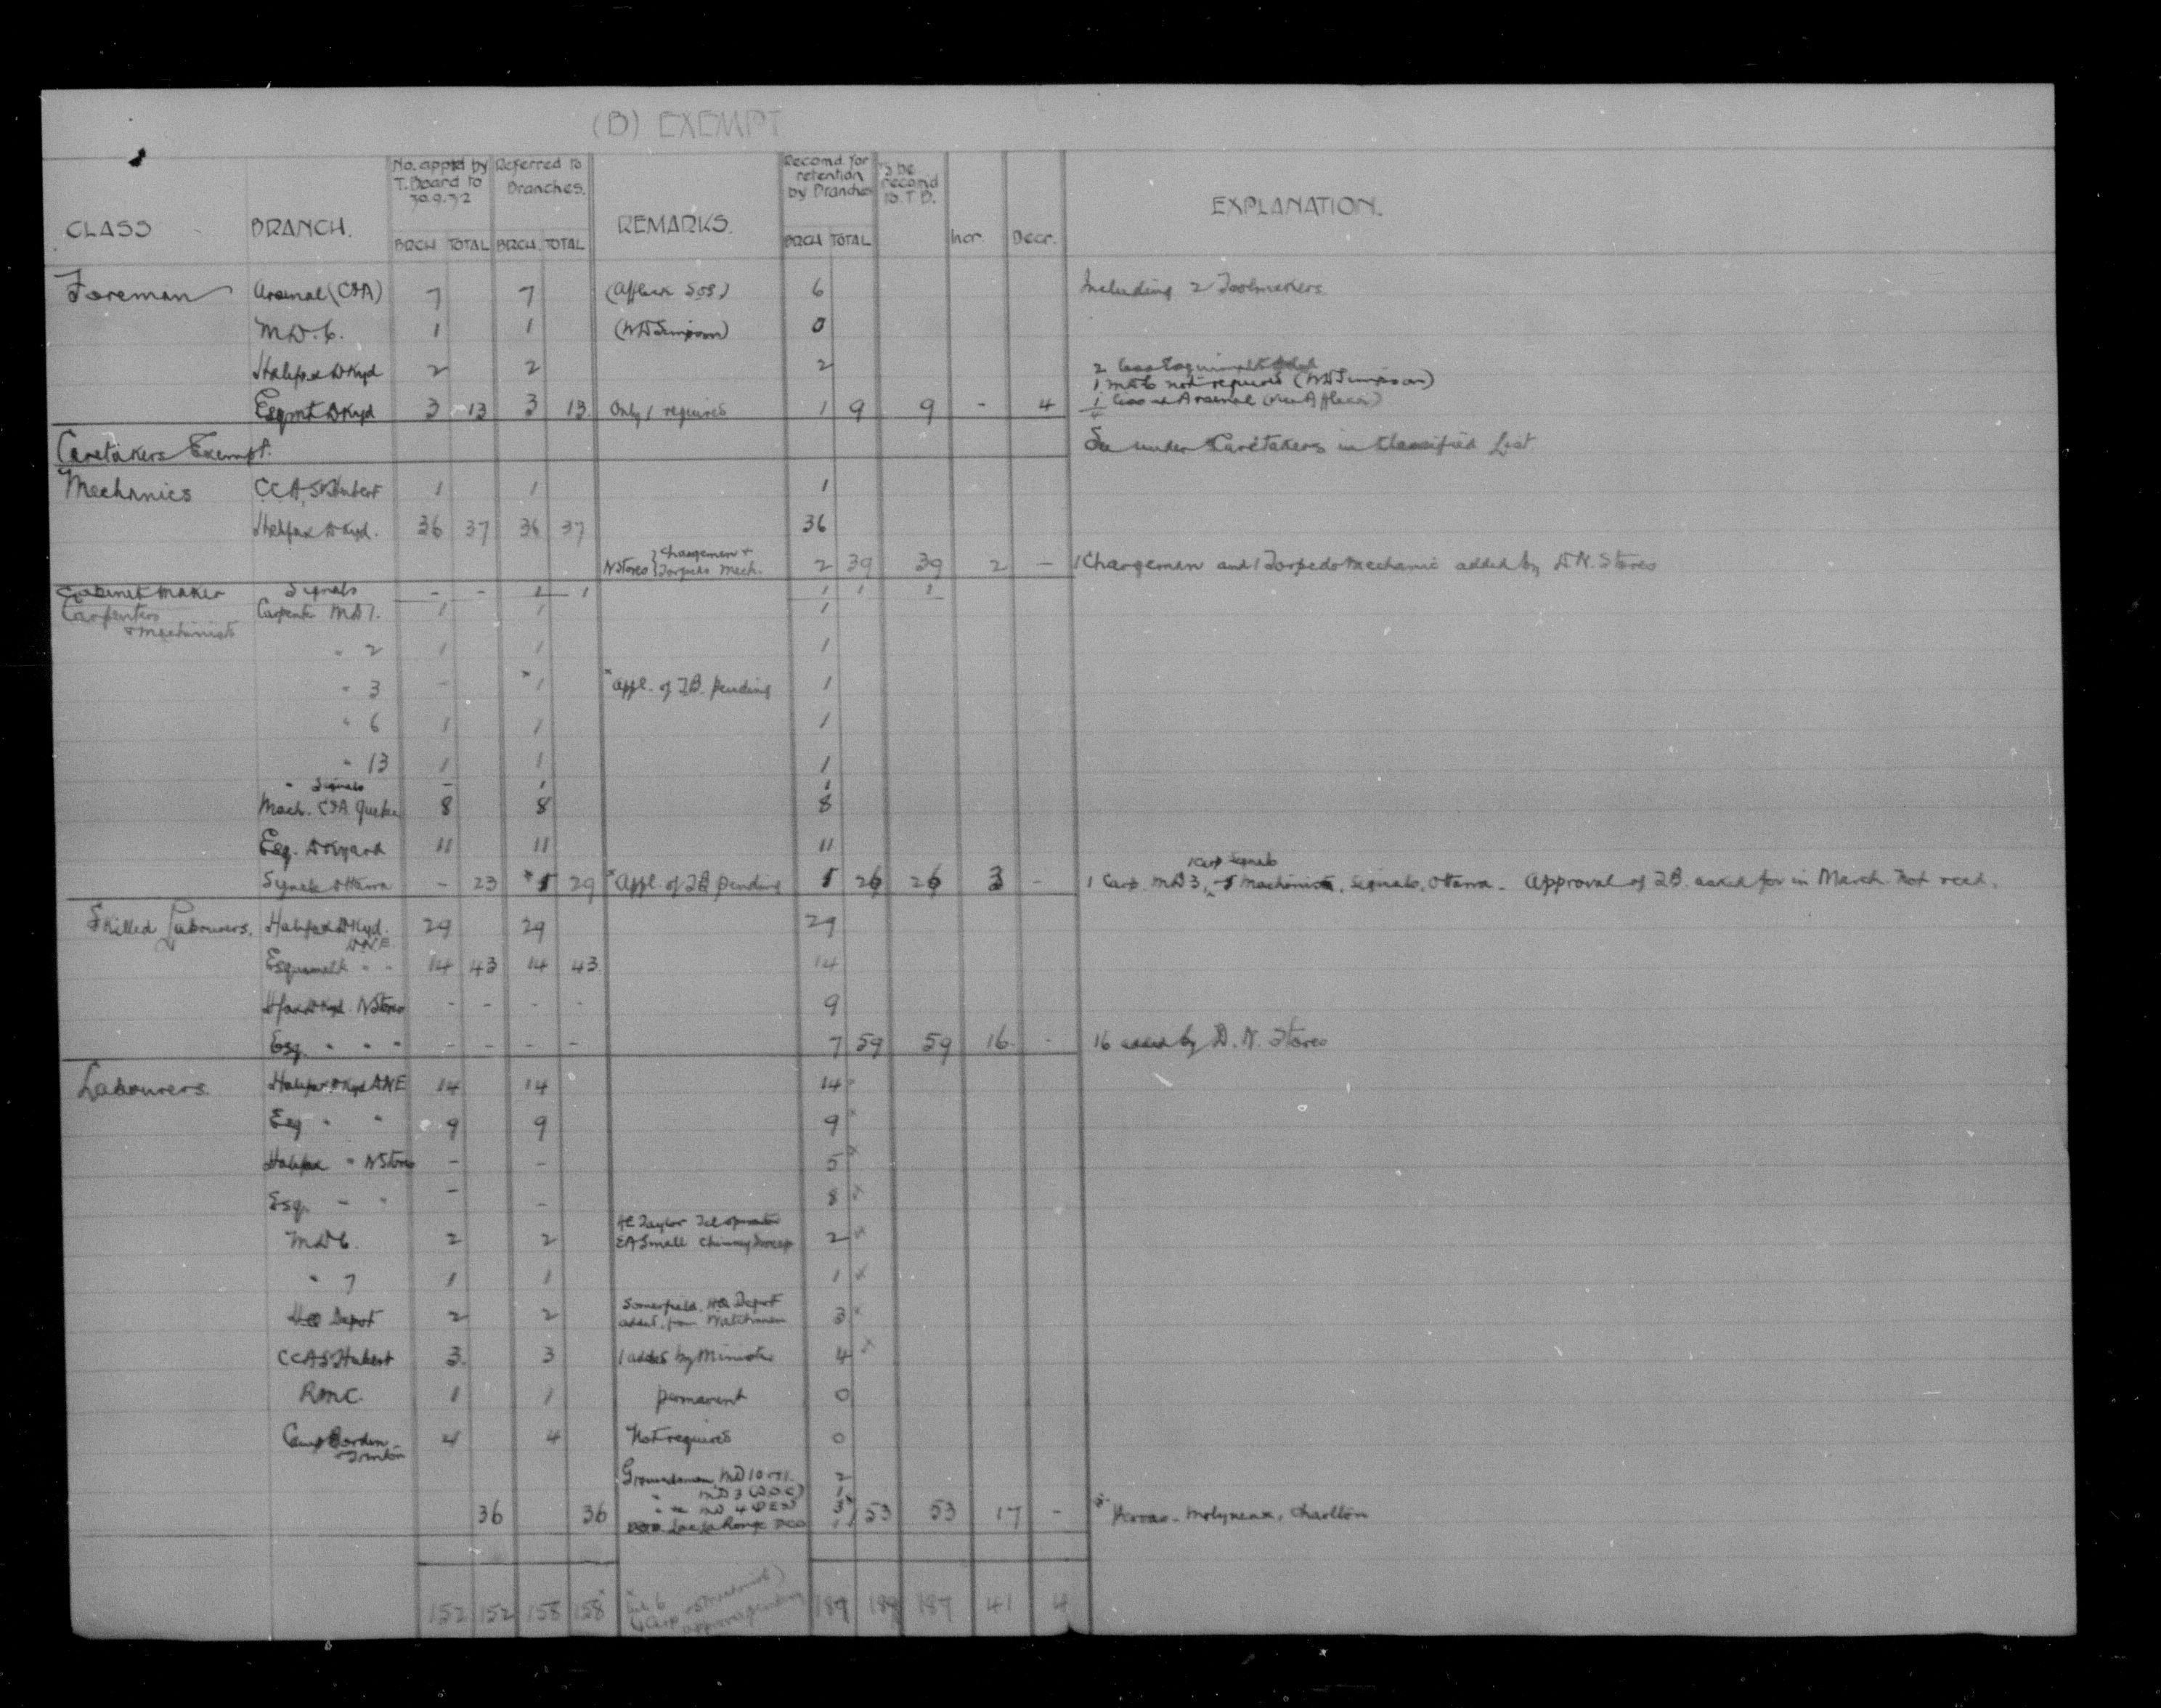 (B) EXEMPT
CLASS BRANCH. No. apptd by T. Board to 30.9.32 Referred to Branches. REMARKS. Recomd. for retention by Branches To be recomd to T.B. Incr. Decr. EXPLANATION.
BRCH TOTAL BRCH. TOTAL BRCH TOTAL
Foreman Arsenal (CIA) 7 7 (Affleck SOS) 6 Including 2 Toolmakers.
M.D. 6. 1 1 (WD Simpson) 0
Halifax DKyd 2 2 2 2 less Esquimalt
1 MD6 not required (WD Simpson)
Esqmt DKyd 3 13 3 13. Only 1 required 1 9 9 - 4 1 less Arsenal (Affleck)
4
Caretakers Exempt. See under Caretakers in Classified List
Mechanics CCA St Hubert 1 1 1
Halifax DKyd. 36 37 36 37 36
N Stores } Chargeman + Torpedo Mech. 2 39 39 2 - 1 Chargeman and 1 Torpedo Mechanic added by D.N. Stores
Cabinet Maker Signals - - 1 1 1 1 1
Carpenters + Machinists Carpenter MD 1. 1 1 1
" 2 1 1 1
" 3 - * 1 * Appl. of T.B. pending 1
" 6 1 1 1
" 13 1 1 1
" Signals - 1 1
Mach. CIA Quebec 8 8 8
Esq. DKyard 11 11 11
Signals Ottawa - 23 * 5 29 * Appl. of T.B. pending 5 26 26 3 - 1 Carp MD 3, 1 Carp Signals Machinists, Signals, Ottawa - Approval of T.B. asked for in March. Not recd.
Skilled Labourers. Halifax DKyd. DNE 29 29 29
Esquimalt " " 14 43 14 43 14
Hfax DKyd. N Stores - - - - 9
Esq. " " " - - - - 7 59 59 16 - 16 added by D. N. Stores
Labourers. Halifax DKyd DNE 14 14 14
Esq " " 9 9 9 x
Halifax " N Stores - - 5 x
Esq. " " - - 8 x
MD 6. 2 2 Taylor Tel operator
EA Small Chimney Sweep 2 x
" 7 1 1 1 x
HQ Depot 2 2 Somerfield, HQ Depot
added from Watchmen 3 x
CCA St Hubert 3 3 1 added by Minister 4 x
RMC. 1 1 permanent 0
Camp Borden + Trenton 4 4 Not required 0
Groundsman MD 10 2
" MD 3 1
36 36 " MD 4 3 53 53 17 - Molyneux, Charlton
Range 1
152 152 158 158 * 189 189 189 41 4